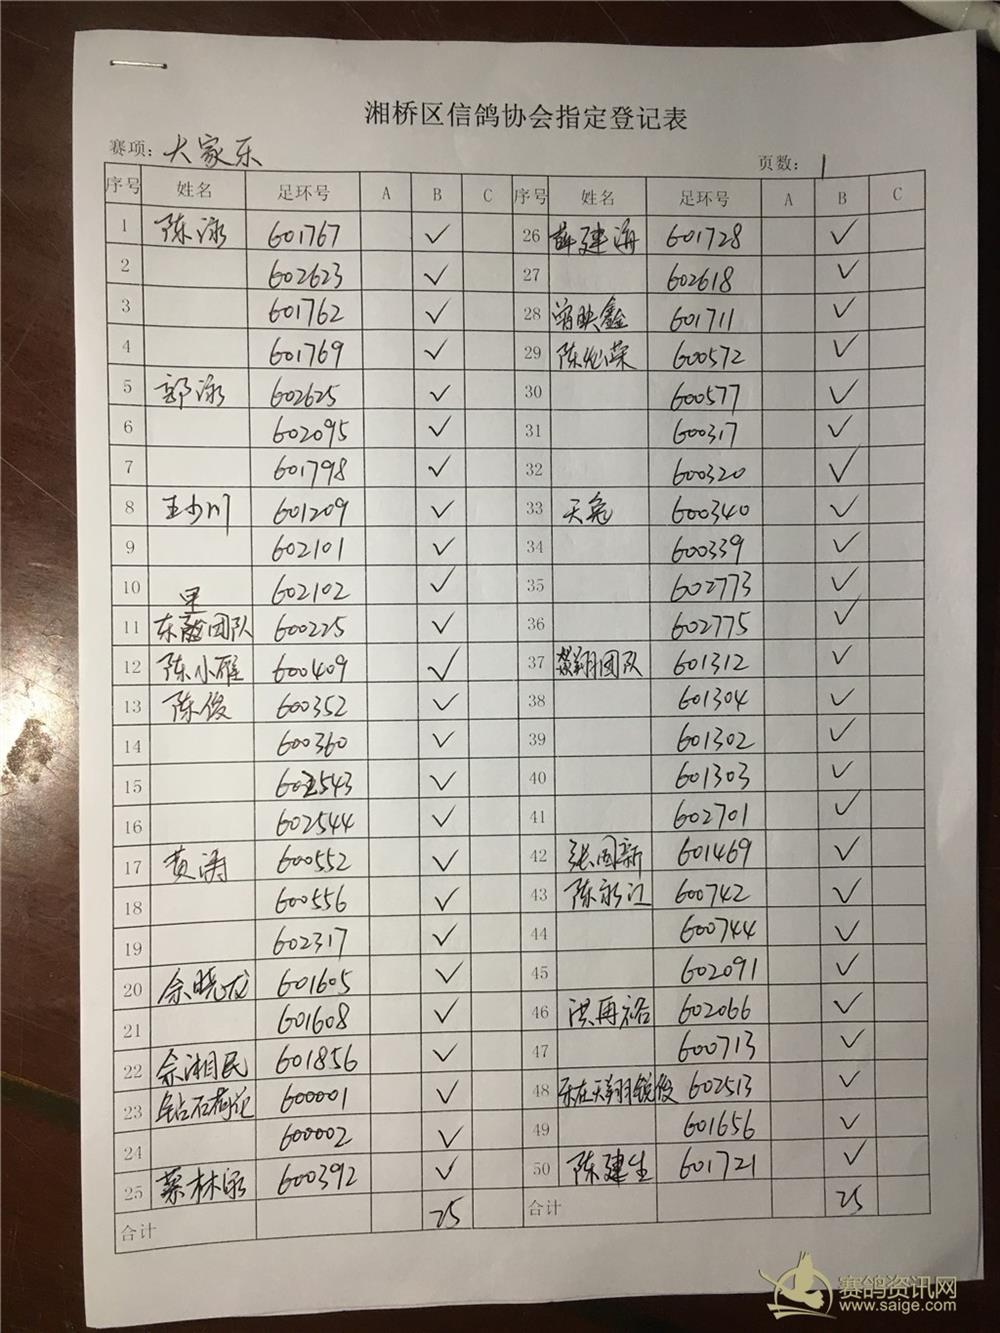 湘桥区信鸽协会指定登记表
赛项: 大家乐 页数: 1
序号 姓名 足环号 A B C 序号 姓名 足环号 A B C
1 陈泳 601767 ✓ 26 薛建海 601728 ✓
2 602623 ✓ 27 602618 ✓
3 601762 ✓ 28 曾映鑫 601711 ✓
4 601769 ✓ 29 陈彪荣 600572 ✓
5 郭泳 602625 ✓ 30 600577 ✓
6 602095 ✓ 31 600317 ✓
7 601798 ✓ 32 600320 ✓
8 王少川 601209 ✓ 33 天兔 600340 ✓
9 602101 ✓ 34 600339 ✓
10 602102 ✓ 35 602773 ✓
11 东 团队 600225 ✓ 36 602775 ✓
12 陈小雁 600409 ✓ 37 翔团队 601312 ✓
13 陈俊 600352 ✓ 38 601304 ✓
14 600360 ✓ 39 601302 ✓
15 602543 ✓ 40 601303 ✓
16 602544 ✓ 41 602701 ✓
17 黄涛 600552 ✓ 42 张国新 601469 ✓
18 600556 ✓ 43 陈永江 600742 ✓
19 602317 ✓ 44 600744 ✓
20 余晓龙 601605 ✓ 45 602091 ✓
21 601608 ✓ 46 洪再裕 602066 ✓
22 佘湘民 601856 ✓ 47 600713 ✓
23 钻石荷花 600001 ✓ 48 乐在天翔锐俊 602513 ✓
24 600002 ✓ 49 601656 ✓
25 蔡林泳 600392 ✓ 50 陈建生 601721 ✓
合计 25 合计 25
赛鸽资讯网
www.saige.com